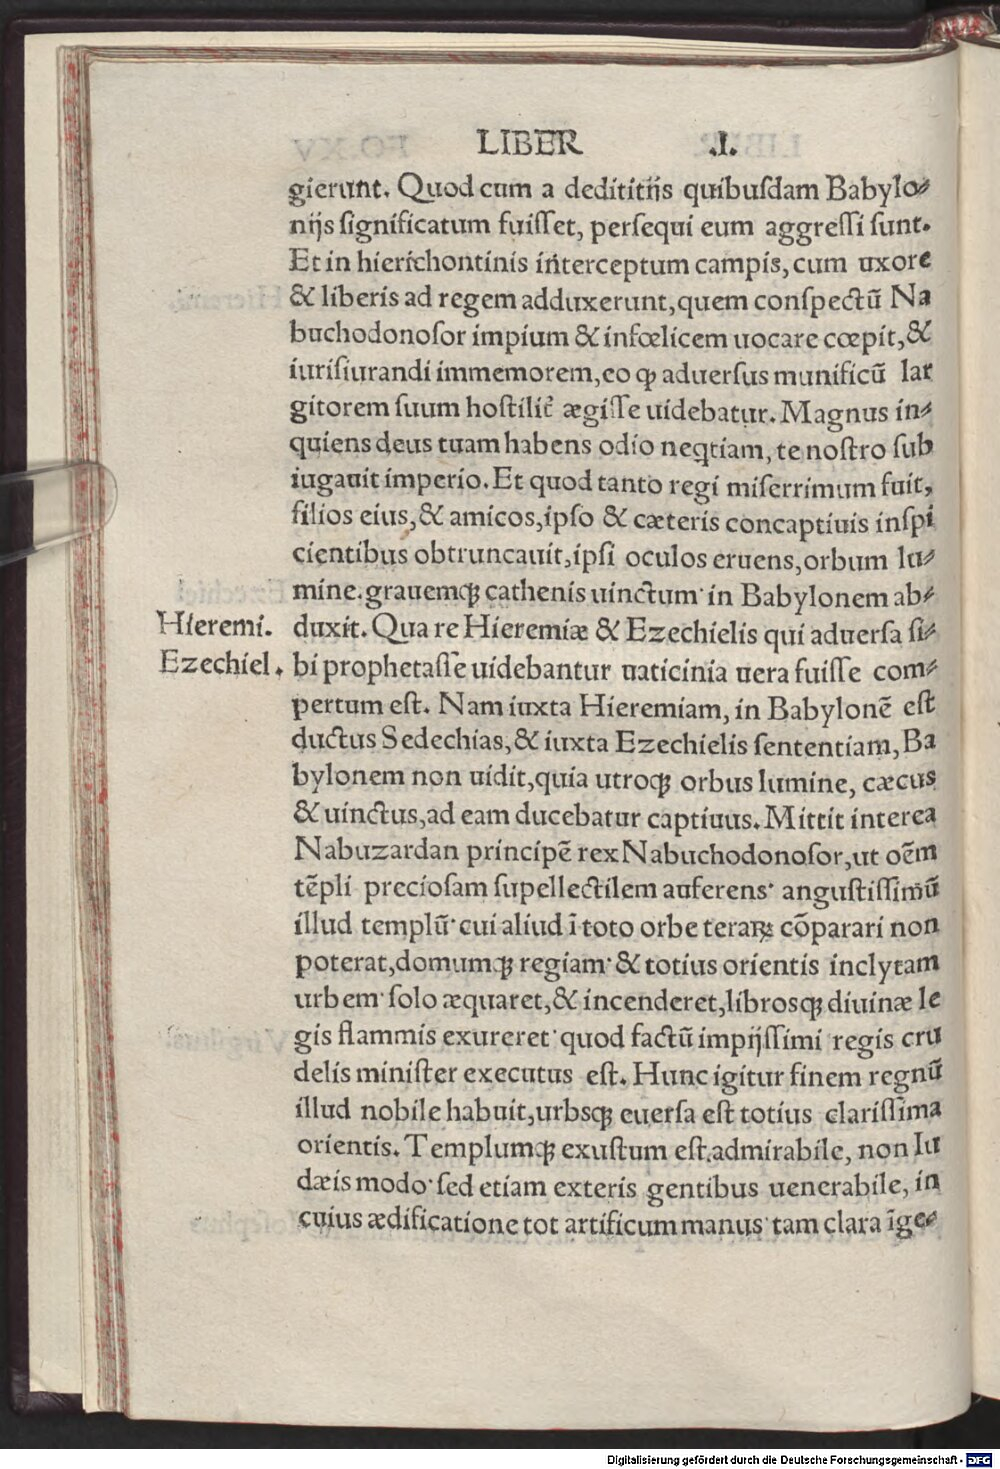 LIBER .I.
gierunt. Quod cum a dedititiis quibuſdam Babylo⸗
nijs ſignificatum fuiſſet, perſequi eum aggreſſi ſunt.
Et in hierichontinis interceptum campis, cum uxore
& liberis ad regem adduxerunt, quem conſpectū Na
buchodonoſor impium & infœlicem uocare cœpit, &
iuriſiurandi immemorem, eo ꝙ aduerſus munificū lar
gitorem ſuum hoſtilit̃ ægiſſe uidebatur. Magnus in⸗
quiens deus tuam habens odio neqtiam, te noſtro ſub
iugauit imperio. Et quod tanto regi miſerrimum fuit,
filios eius, & amicos, ipſo & cæteris concaptiuis inſpi
cientibus obtruncauit, ipſi oculos eruens, orbum lu⸗
mine. grauemqꝫ cathenis uinctum· in Babylonem ab⸗
Hieremi. duxit. Qua re Hieremiæ & Ezechielis qui aduerſa ſi⸗
Ezechiel. bi prophetaſſe uidebantur uaticinia uera fuiſſe com⸗
pertum eſt. Nam iuxta Hieremiam, in Babylonē eſt
ductus Sedechias, & iuxta Ezechielis ſententiam, Ba
bylonem non uidit, quia utroqꝫ orbus lumine, cæcus
& uinctus, ad eam ducebatur captiuus. Mittit interea
Nabuzardan principē rex Nabuchodonoſor, ut oēm
tēpli precioſam ſupellectilem auferens· anguſtiſſimū
illud templū· cui aliud ī toto orbe teraꝝ cōparari non
poterat, domumqꝫ regiam· & totius orientis inclytam
urbem· ſolo æquaret, & incenderet, librosqꝫ diuinæ le
gis flammis exureret· quod factū impijſſimi regis cru
delis miniſter executus eſt. Hunc igitur finem regnū
illud nobile habuit, urbsqꝫ euerſa eſt totius clariſſima
orientis. Templumqꝫ exuſtum eſt. admirabile, non Iu
dæis modo· ſed etiam exteris gentibus uenerabile, in
cuius ædificatione tot artificum manus· tam clara īge⸗
Digitalisierung gefördert durch die Deutsche Forschungsgemeinschaft - DFG